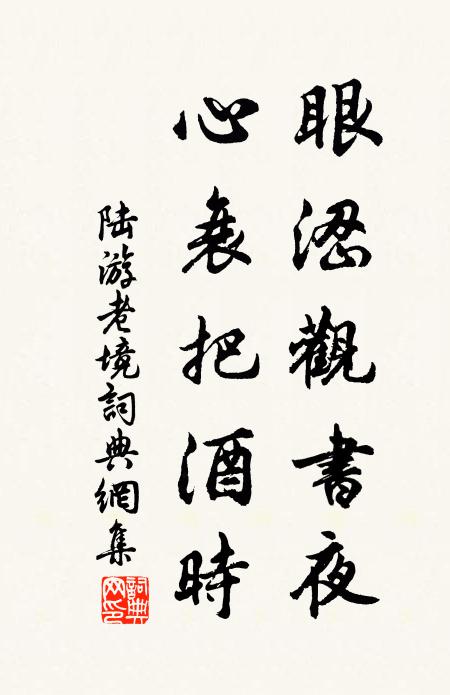 眼涩觀書夜
心衰把酒時
陆游老境詞典網集
詞典网印